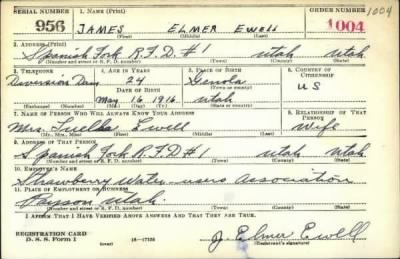 SERIAL NUMBER 1. NAME (Print) ORDER NUMBER 1004
956 JAMES ELMER EWELL 1004
(First) (Middle) (Last)
2. ADDRESS (Print)
Spanish Fork R.F.D. #1 Utah Utah
(Number and street or R. F. D. number) (Town) (County) (State)
3. TELEPHONE 4. AGE IN YEARS 5. PLACE OF BIRTH 6. COUNTRY OF CITIZENSHIP
Diversion Dam 24 Genola U S
DATE OF BIRTH (Town or county)
May 16 1916 Utah
(Exchange) (Number) (Mo.) (Day) (Yr.) (State or country)
7. NAME OF PERSON WHO WILL ALWAYS KNOW YOUR ADDRESS 8. RELATIONSHIP OF THAT PERSON
Mrs. Ewell Wife
(Mr., Mrs., Miss) (First) (Middle) (Last)
9. ADDRESS OF THAT PERSON
Spanish Fork R.F.D #1 Utah Utah
(Number and street or R. F. D. number) (Town) (County) (State)
10. EMPLOYER'S NAME
Strawberry Water-users Association
11. PLACE OF EMPLOYMENT OR BUSINESS
Payson Utah.
(Number and street or R. F. D. number) (Town) (County) (State)
I AFFIRM THAT I HAVE VERIFIED ABOVE ANSWERS AND THAT THEY ARE TRUE.
REGISTRATION CARD
D. S. S. Form 1 (over) 16-17105 J. Elmer Ewell
(Registrant's signature)